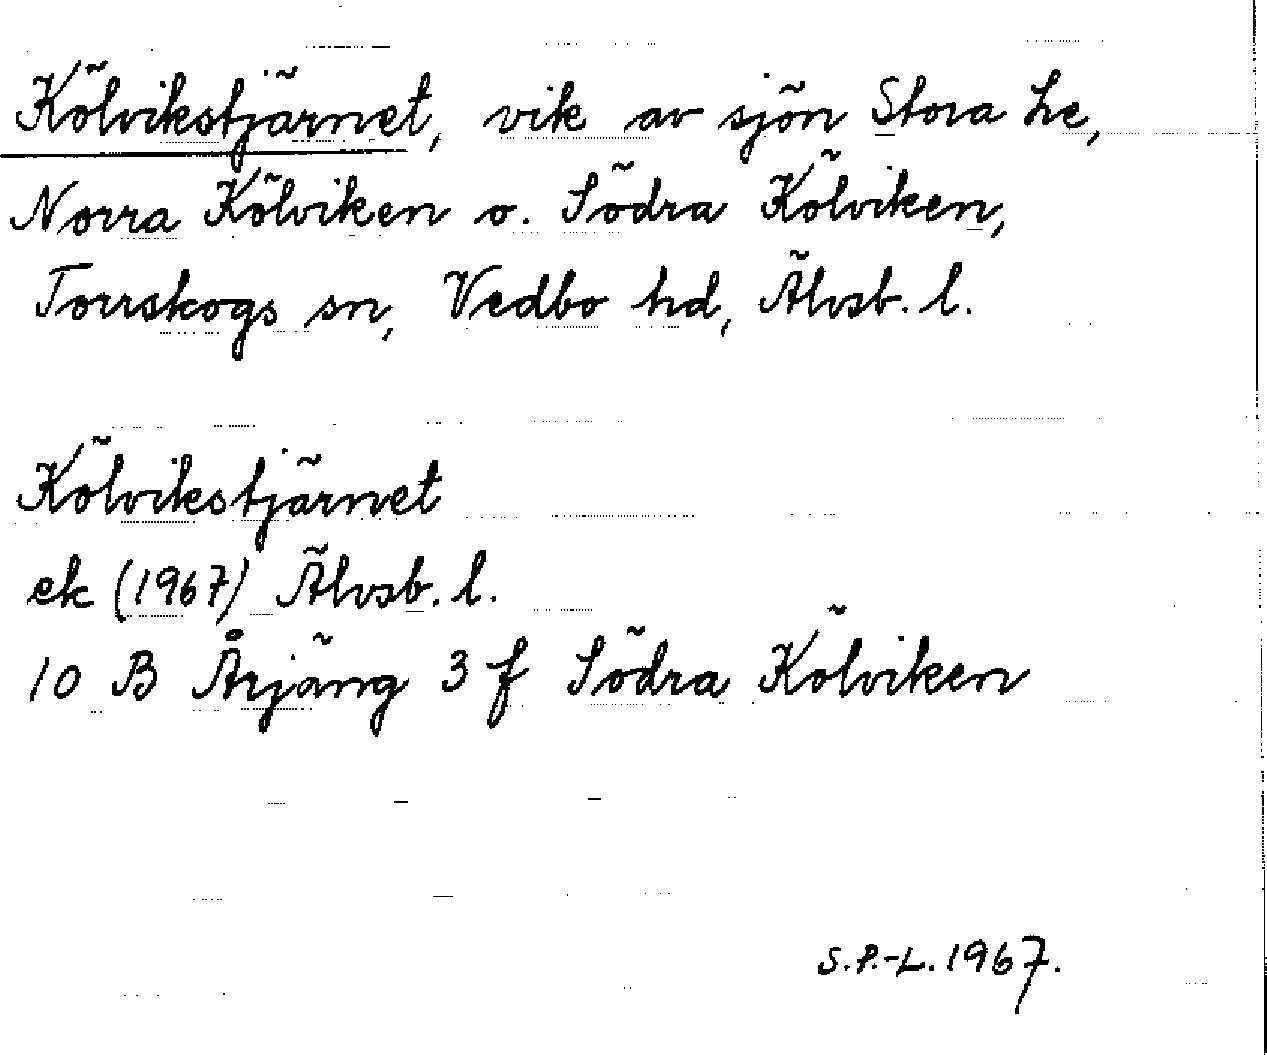 Kölvikstjärnet, vik av sjön Stora Le,
Norra Kölviken o. Södra Kölviken,
Torrskogs sn, Vedbo hd, Älvsb. l.
Kölvikstjärnet
ek (1967) Älvsb. l.
10 B Årjäng 3 f Södra Kölviken
S.P.-L. 1967.